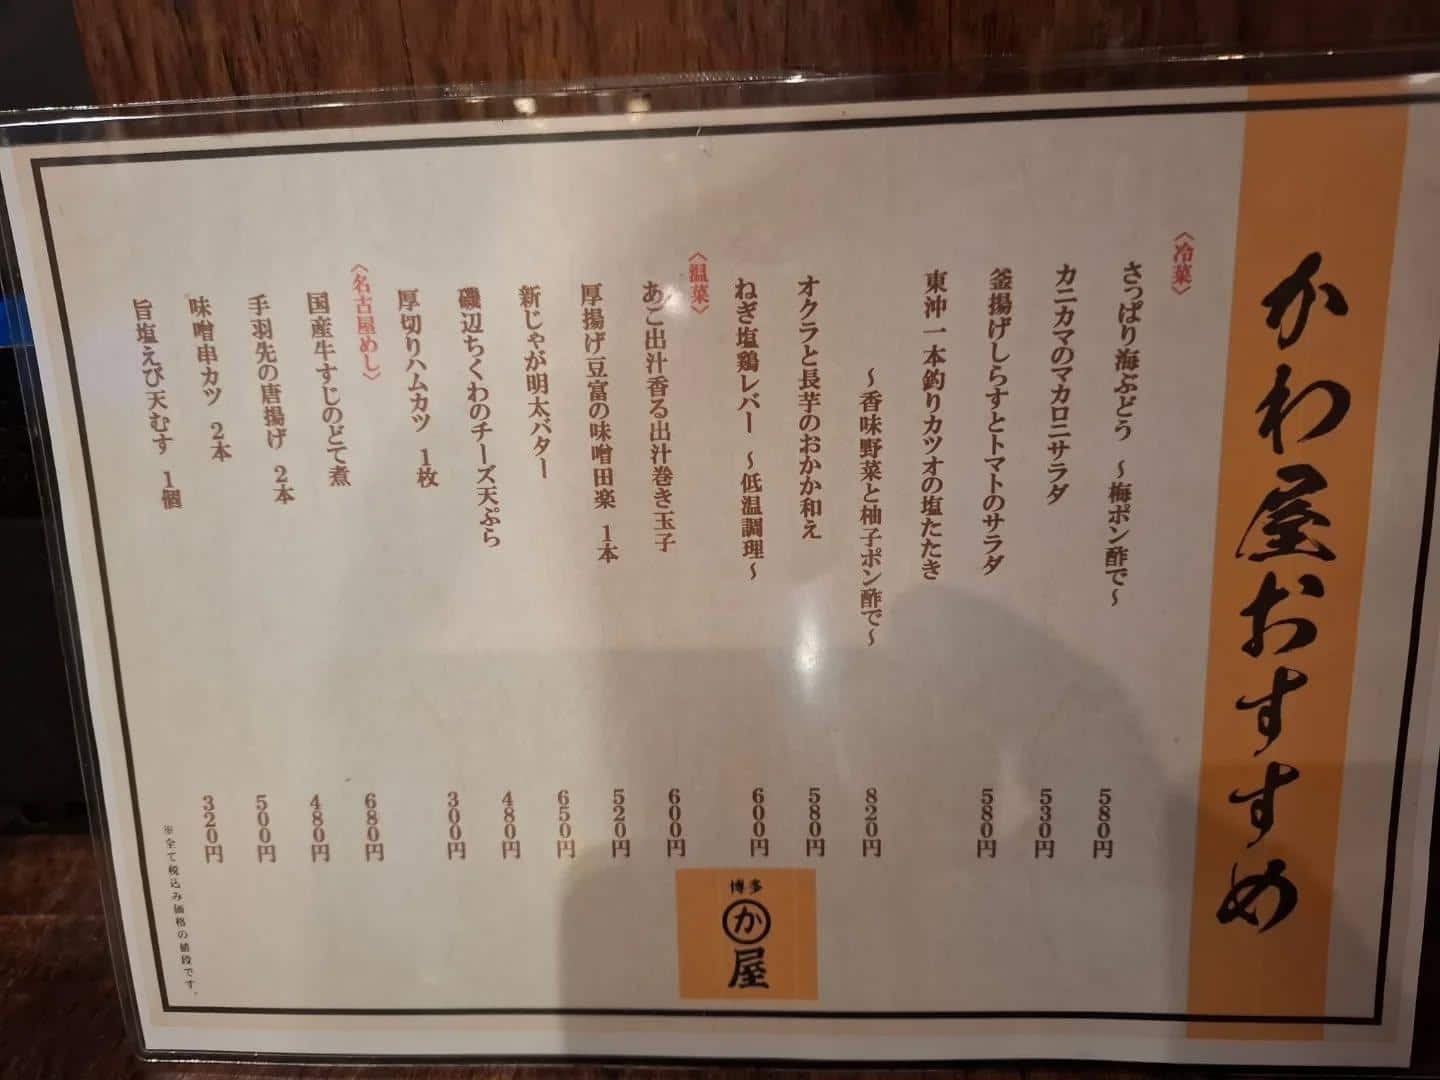 かわ屋おすすめ
〈冷菜〉
さっぱり海ぶどう ～梅ポン酢で～ 580円
カニカマのマカロニサラダ 530円
釜揚げしらすとトマトのサラダ 580円
東沖一本釣りカツオの塩たたき
～香味野菜と柚子ポン酢で～ 820円
オクラと長芋のおかか和え 580円
ねぎ塩鶏レバー ～低温調理～ 600円
〈温菜〉
あご出汁香る出汁巻き玉子 600円
厚揚げ豆富の味噌田楽 1本 520円
新じゃが明太バター 650円
磯辺ちくわのチーズ天ぷら 480円
厚切りハムカツ 1枚 300円
〈名古屋めし〉
国産牛すじのどて煮 680円
手羽先の唐揚げ 2本 480円
味噌串カツ 2本 500円
旨塩えび天むす 1個 320円
※全て税込み価格の値段です。
博多
か
屋